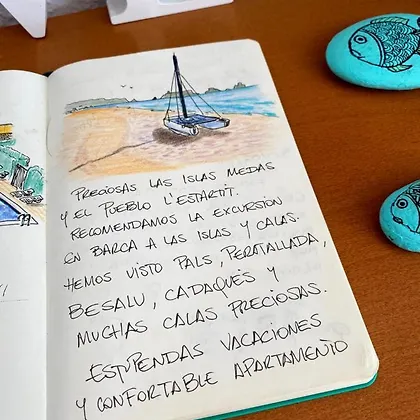 PRECIOSAS LAS ISLAS MEDAS
Y EL PUEBLO L'ESTARTIT.
RECOMENDAMOS LA EXCURSION
EN BARCA A LAS ISLAS Y CALAS.
HEMOS VISTO PALS, PERATALLADA,
BESALU, CADAQUES Y
MUCHAS CALAS PRECIOSAS.
ESTUPENDAS VACACIONES
Y CONFORTABLE APARTAMENTO